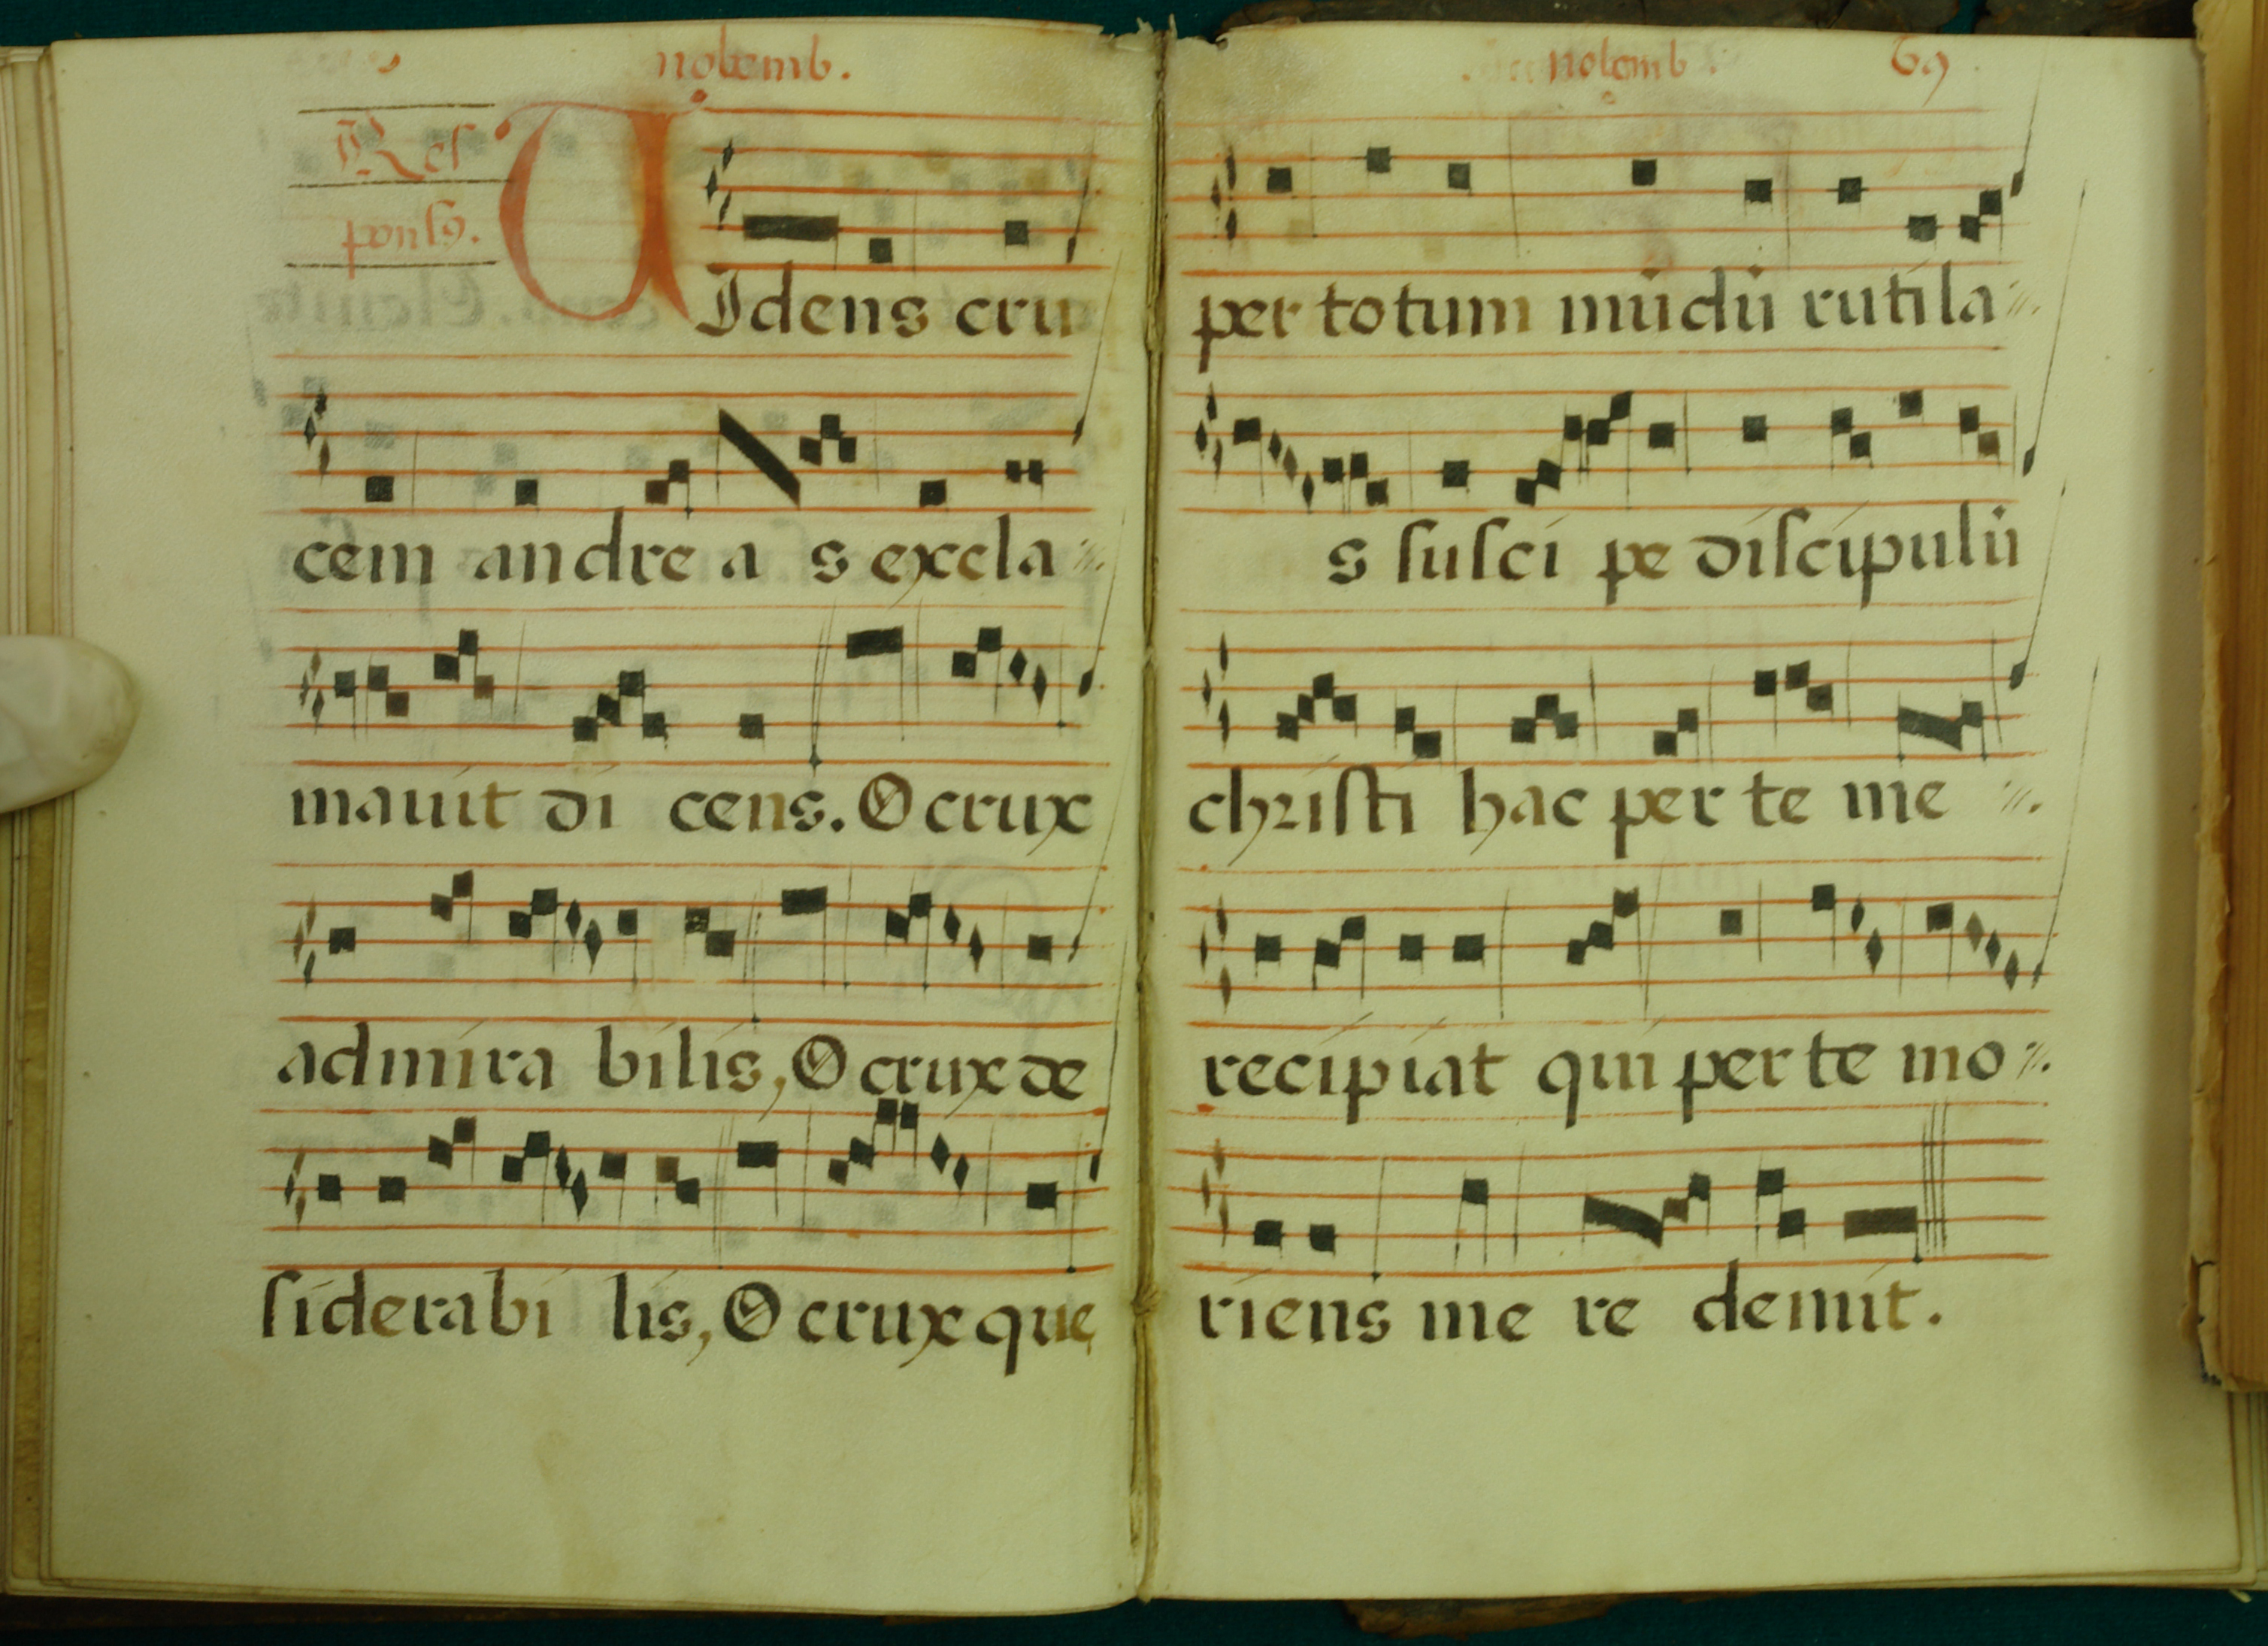 nobemb.
Res
pons9.
VIdens cru
cem andre a s excla
mauit di cens. O crux
admira bilis, O crux de
siderabi lis, O crux quę
nobemb. 69
per totum mūdū rutila
s susci pe discipulū
christi hac per te me
recipiat qui per te mo
riens me re demit.